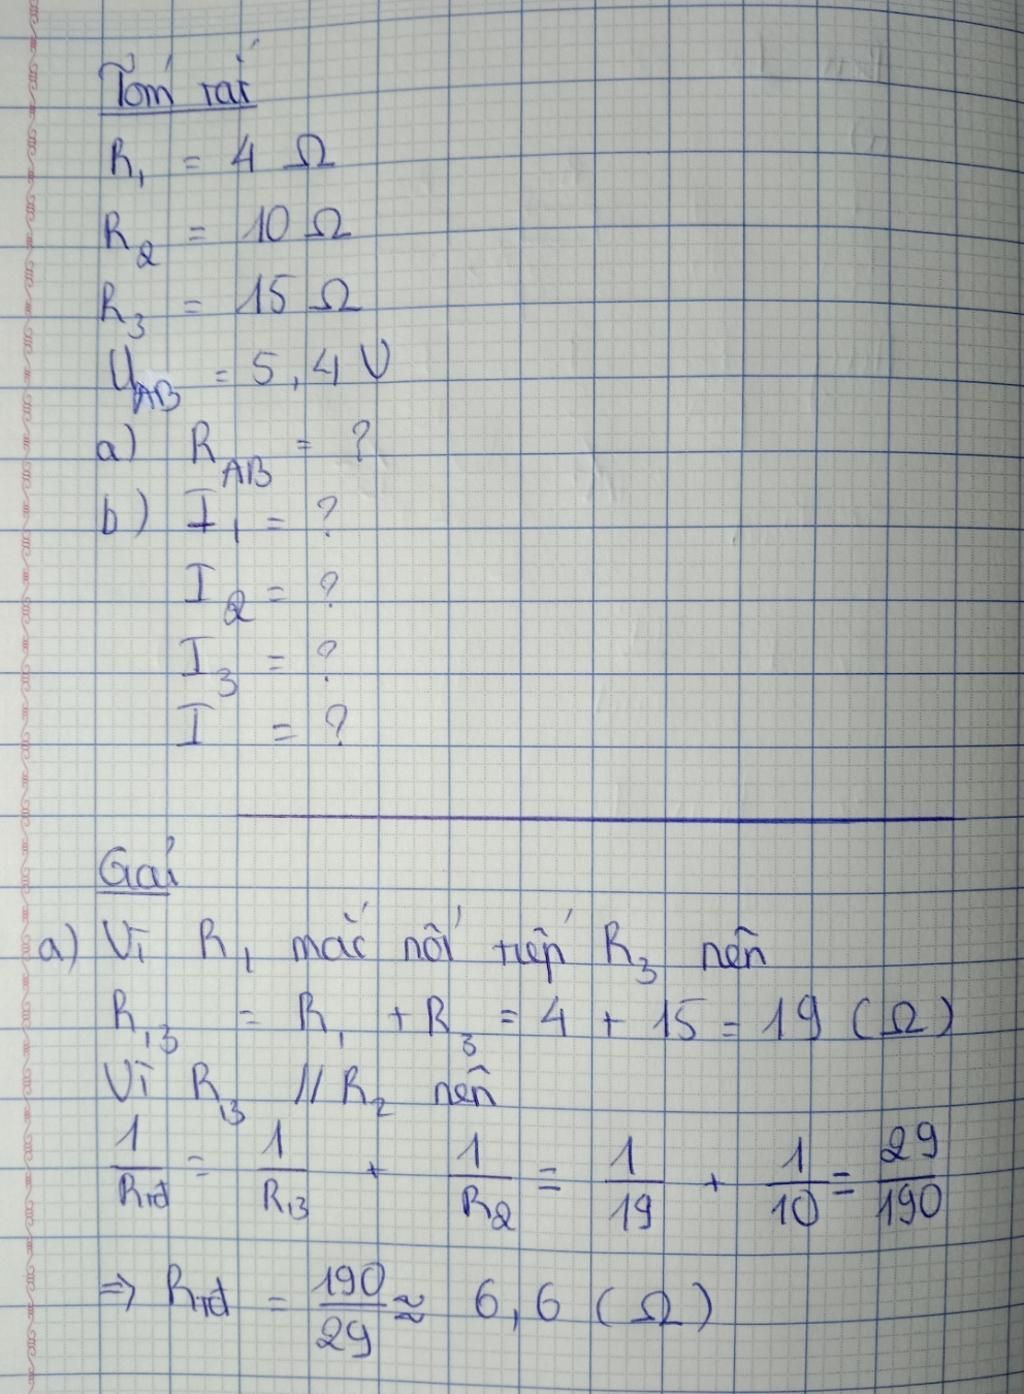 Tóm tắt
R₁ = 4 Ω
R₂ = 10 Ω
R₃ = 15 Ω
U_AB = 5,4 V
a) R_AB = ?
b) I₁ = ?
I₂ = ?
I₃ = ?
I = ?
Giải
a) Vì R₁ mắc nối tiếp R₃ nên
R₁₃ = R₁ + R₃ = 4 + 15 = 19 (Ω)
Vì R₁₃ // R₂ nên
1/R_tđ = 1/R₁₃ + 1/R₂ = 1/19 + 1/10 = 29/190
⇒ R_tđ = 190/29 ≈ 6,6 (Ω)